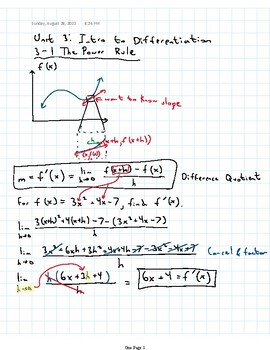 Sunday, August 28, 2022 8:24 PM
Unit 3: Intro to Differentiation
3-1 The Power Rule
f(x)
want to know slope
(x+h, f(x+h))
m = f'(x) = lim h→0 f(x+h) - f(x) / h Difference Quotient
for f(x) = 3x² + 4x - 7, find f'(x).
lim h→0 3(x+h)² + 4(x+h) - 7 - (3x² + 4x - 7) / h
lim h→0 3x² + 6xh + 3h² + 4x + 4h - 7 - 3x² - 4x + 7 / h Cancel & factor
lim h→0 h(6x + 3h + 4) / h = 6x + 4 = f'(x)
One Page 1